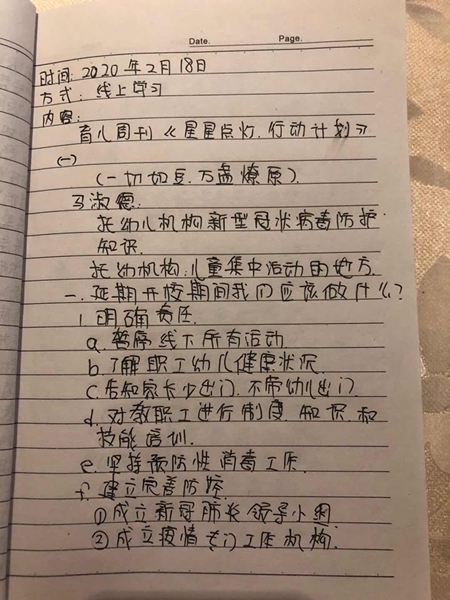 Date.    Page.
时间: 2020年2月18日
方式: 线上学习
内容:
育儿周刊《星星点灯.行动计划》
(一)
(一切如豆.万盏燎原).
马淑德:
托幼儿机构新型冠状病毒防护
知识.
托幼机构:儿童集中活动的地方.
一.延期开校期间我们应该做什么?
1.明确责任
a.暂停线下所有活动.
b.了解职工幼儿健康状况.
c.告知家长少出门.不带幼儿出门
d.对教职工进行制度.知识和
技能培训.
e.坚持预防性消毒工作.
f.建立完善防控
①成立新冠肺炎领导小
②成立疫情专门工作机构.